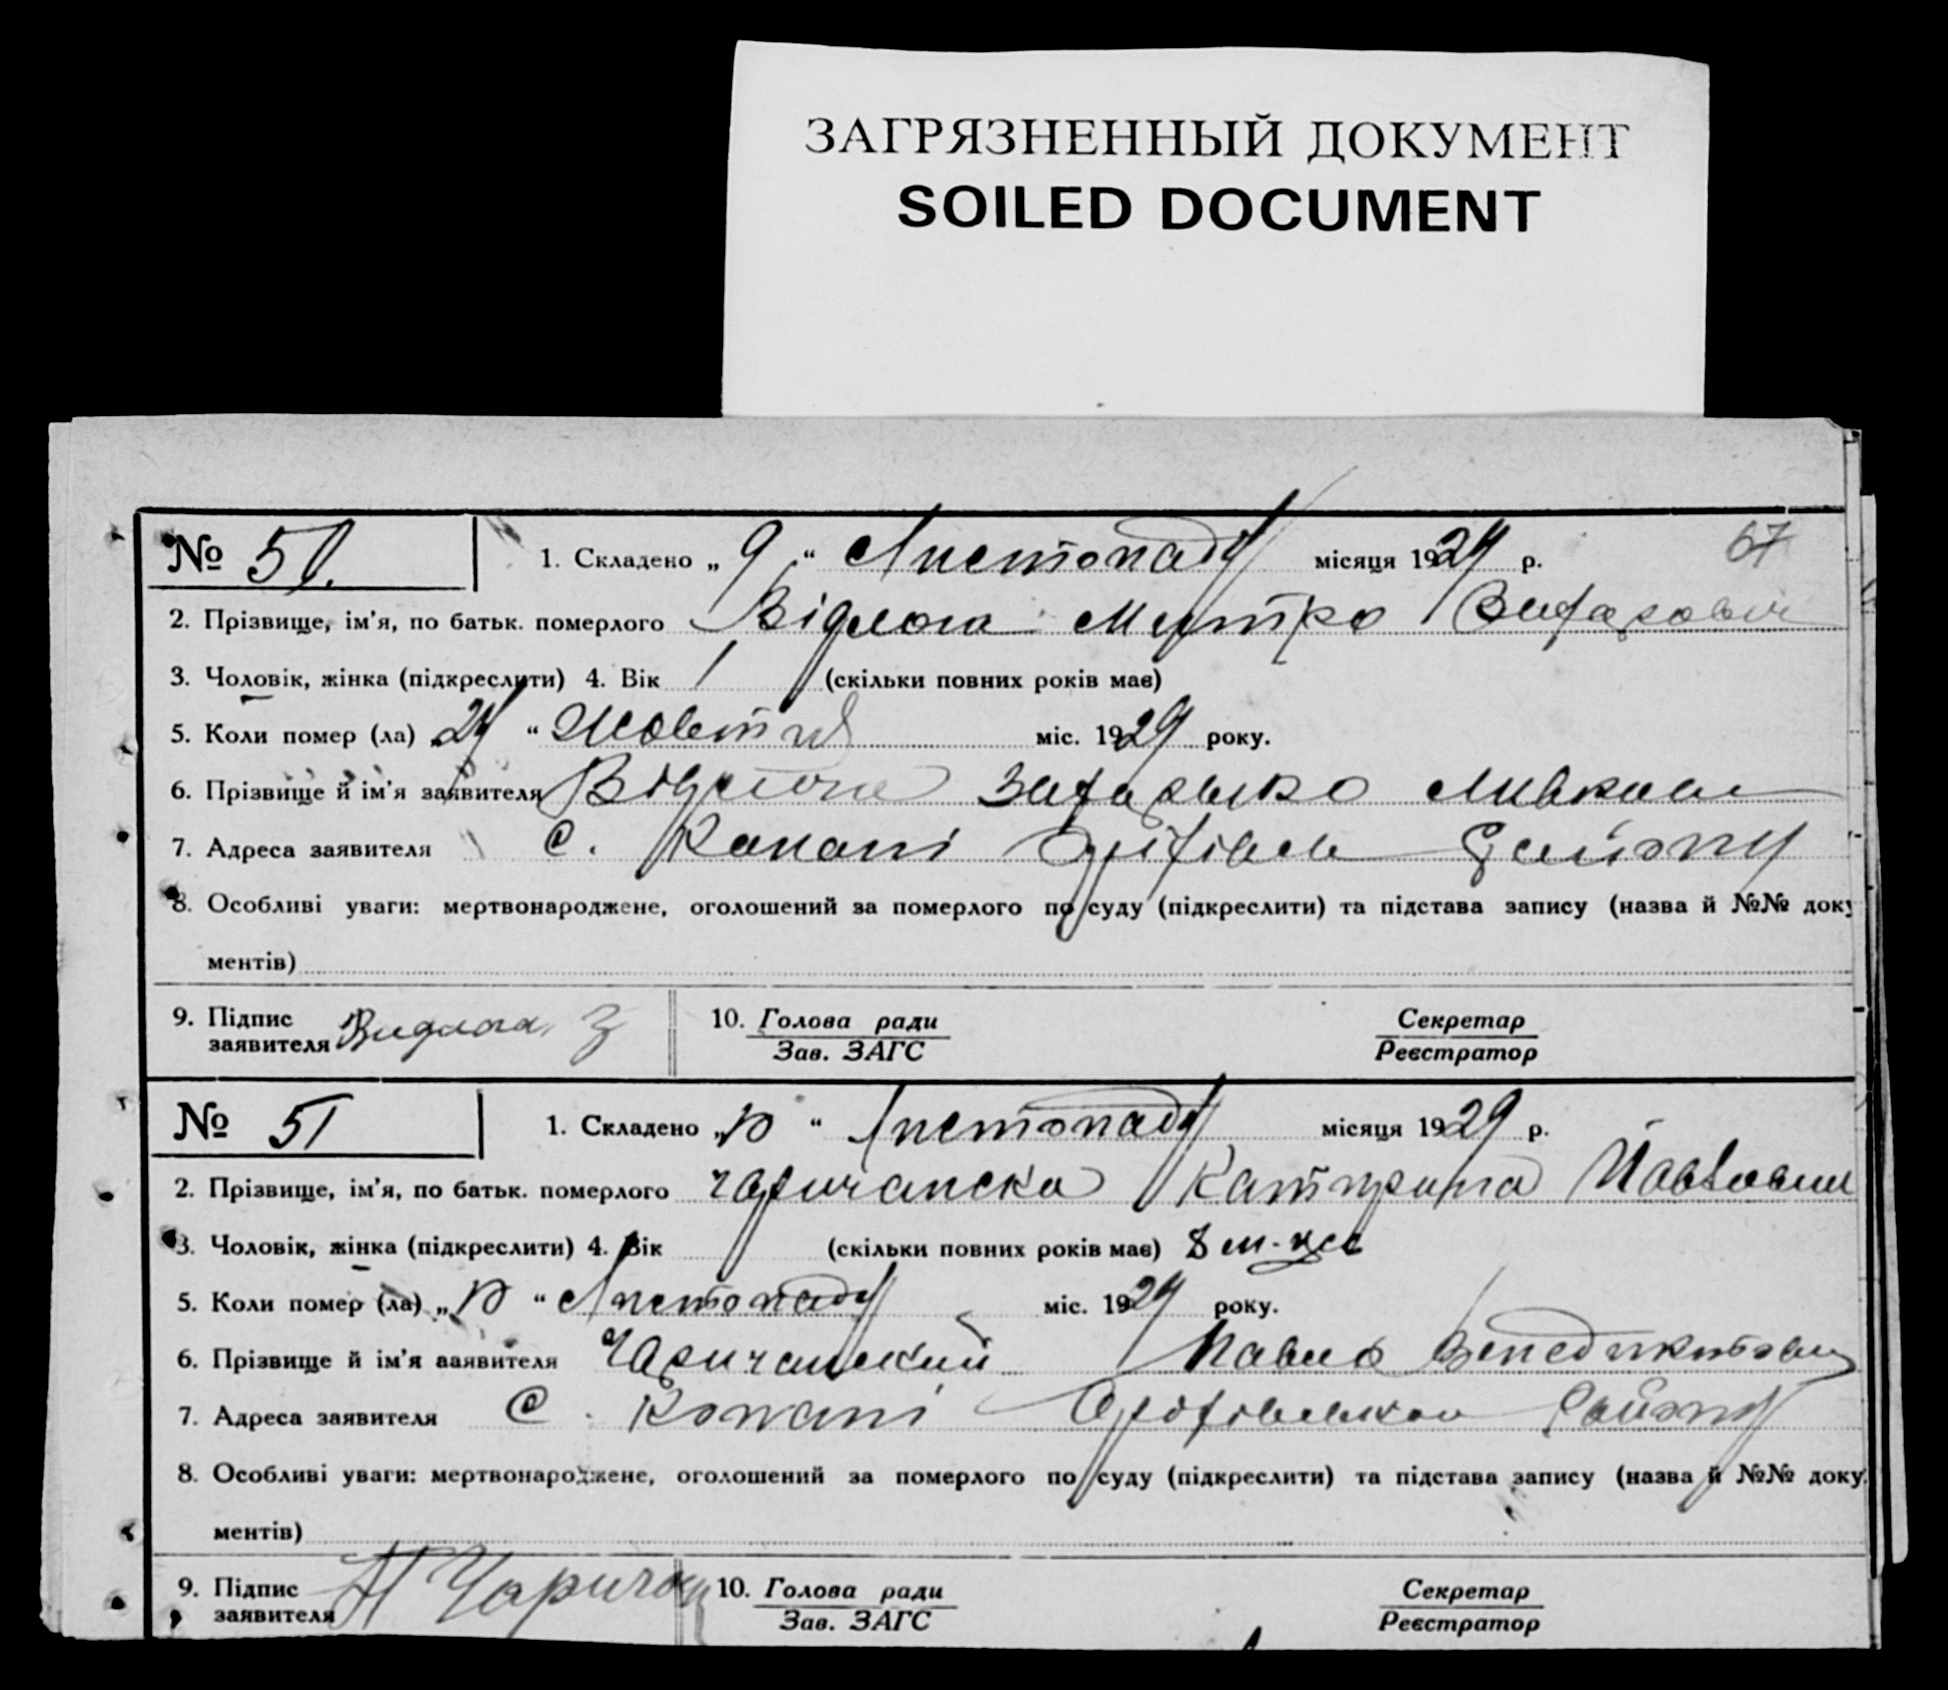 ЗАГРЯЗНЕННЫЙ ДОКУМЕНТ
SOILED DOCUMENT
67
№ 50. 1. Складено „ 9 “ Листопаду місяця 1929 р.
2. Прізвище, ім'я, по батьк. померлого Відлога Митро
3. Чоловік, жінка (підкреслити) 4. Вік 1 (скільки повних років має)
5. Коли помер (ла) „29 “ Жовтня міс. 1929 року.
6. Прізвище й ім'я заявителя Відлога
7. Адреса заявителя с. Копані Оріхівськ Району
8. Особливі уваги: мертвонароджене, оголошений за померлого по суду (підкреслити) та підстава запису (назва й №№ доку
ментів)
9. Підпис заявителя Видлога З
10. Голова ради
Зав. ЗАГС
Секретар
Реєстратор
№ 51 1. Складено „10 “ Листопаду місяця 1929 р.
2. Прізвище, ім'я, по батьк. померлого Чаричанська Катирина Павловна
3. Чоловік, жінка (підкреслити) 4. Вік (скільки повних років має) 8 м-ців
5. Коли помер (ла) „10 “ Листопаду міс. 1929 року.
6. Прізвище й ім'я заявителя Чаричанский Павло Венедиктович
7. Адреса заявителя с. Копані Оріхівського Району
8. Особливі уваги: мертвонароджене, оголошений за померлого по суду (підкреслити) та підстава запису (назва й №№ доку
ментів)
9. Підпис заявителя П Чаричан
10. Голова ради
Зав. ЗАГС
Секретар
Реєстратор